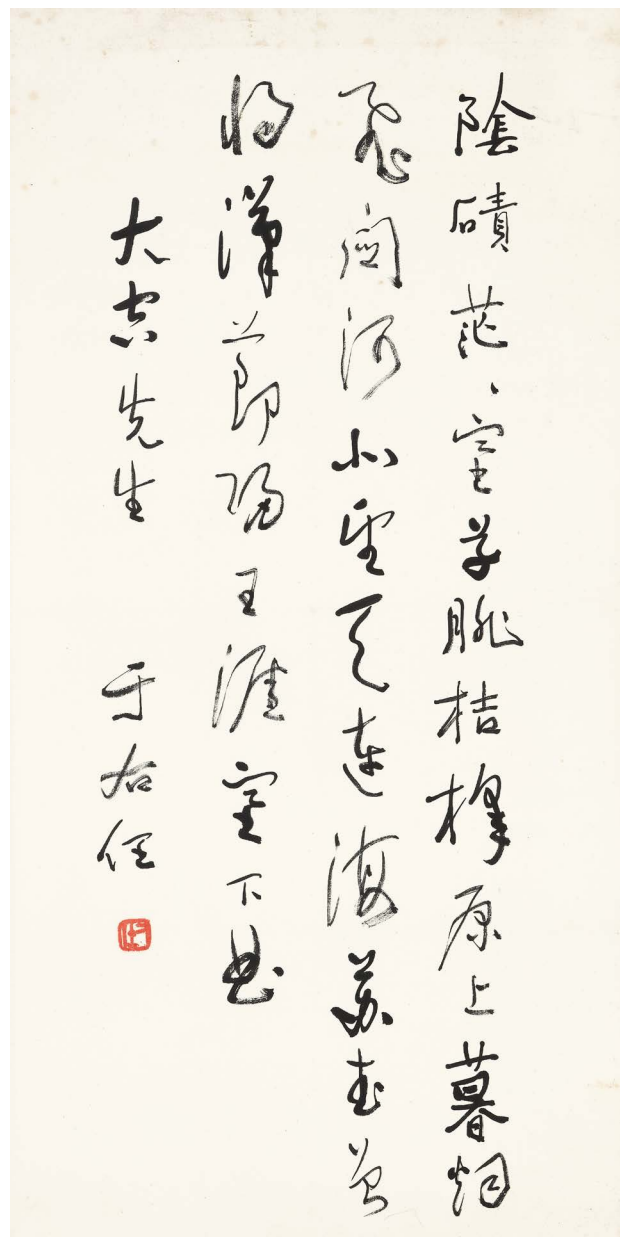 陰磧茫〻塞草腓桔槔原上暮烟
飛關河北望天連海蘇武曾
將漢節歸王涯塞下曲
大先生 于右任